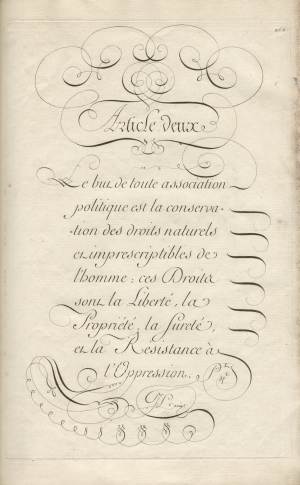 Article deux
Le but de toute association
politique est la conserva-
tion des droits naturels
et imprescriptibles de
l'homme : ces Droits
sont la Liberté, la
Propriété, la sureté,
et la Resistance à
l'Oppression.